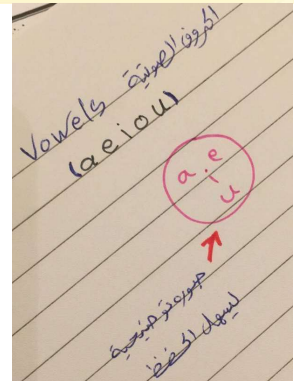 الحروف الصوتية
Vowels
(aeiou)
a e
i
u
صورة توضيحية
ليسهل الحفظ